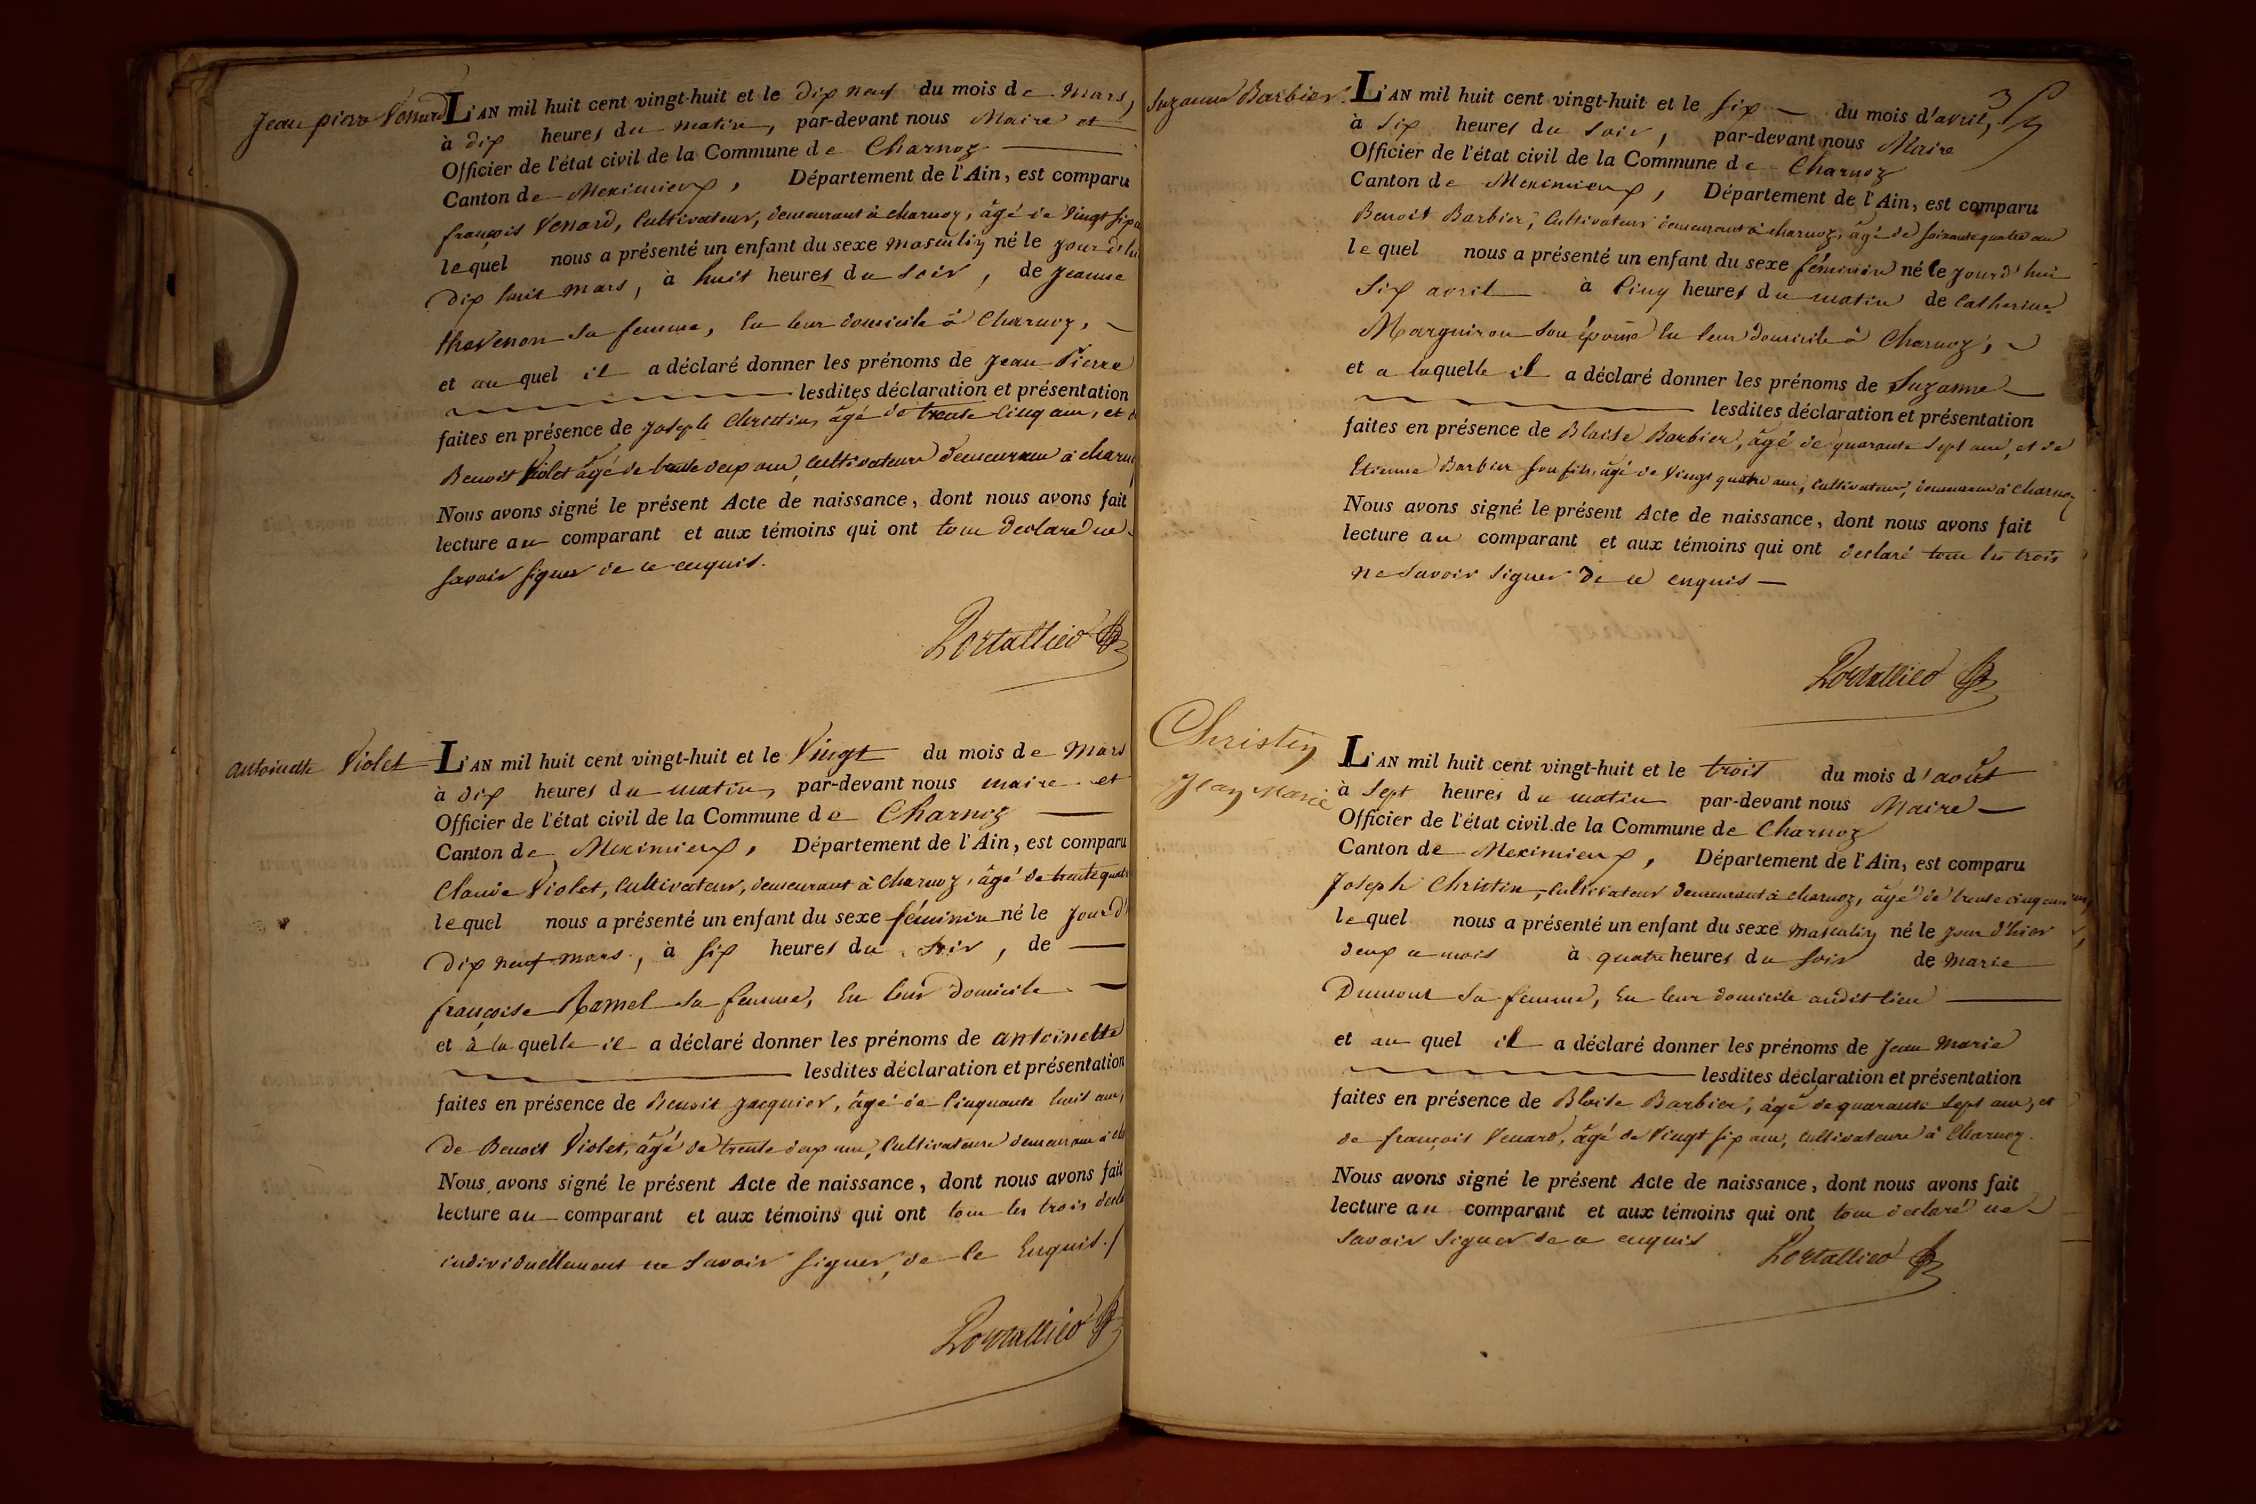 Jean pierre Venard
L'AN mil huit cent vingt-huit et le dix neuf du mois de mars,
à dix heures du matin, par-devant nous Maire et
Officier de l'état civil de la Commune de Charnoz
Canton de Meximieux, Département de l'Ain, est comparu
françois Venard, Cultivateur, demeurant à charnoz, âgé de vingt six
le quel nous a présenté un enfant du sexe masculin né le jour d'hi
dix huit mars, à huit heures du soir, de jeanne
thevenon sa femme, En leur domicile à Charnoz,
et au quel il a déclaré donner les prénoms de jean Pierre
lesdites déclaration et présentation
faites en présence de joseph Christin, âgé de trente cinq ans, et d
Benoit Violet âgé de trente deux ans, cultivateurs demeurans à charn
Nous avons signé le présent Acte de naissance, dont nous avons fait
lecture au comparant et aux témoins qui ont tous declaré ne
savoir signer de ce enquis.
Portallier
antoinette Violet
L'AN mil huit cent vingt-huit et le Vingt du mois de Mars
à dix heures du matin, par-devant nous maire et
Officier de l'état civil de la Commune de Charnoz
Canton de Meximieux, Département de l'Ain, est comparu
Claude Violet, Cultivateur, demeurant à Charnoz, âgé de trente quatr
le quel nous a présenté un enfant du sexe féminin né le jour d'
dix neuf mars, à six heures du soir, de
françoise Ramel sa femme, En leur domicile
et à la quelle il a déclaré donner les prénoms de antoinette
lesdites déclaration et présentation
faites en présence de Benoit jacquier, âgé de Cinquante huit ans,
de Benoit Violet, âgé de trente deux ans, Cultivateurs demeurans à ch
Nous avons signé le présent Acte de naissance, dont nous avons fait
lecture au comparant et aux témoins qui ont tous les trois decla
individuellement ne savoir signer, de ce Enquis./
Portallier
Suzanne Barbier.
L'AN mil huit cent vingt-huit et le six du mois d'avril, 3
à six heures du soir, par-devant nous Maire
Officier de l'état civil de la Commune de Charnoz
Canton de Meximieux, Département de l'Ain, est comparu
Benoit Barbier, Cultivateur demeurant à charnoz, âgé de soixante quatre ans
le quel nous a présenté un enfant du sexe féminin né le jourd'hui
six avril à Cinq heures du matin de Catherine
Marguiron son épouse En leur domicile à Charnoz,
et a laquelle il a déclaré donner les prénoms de Suzanne
lesdites déclaration et présentation
faites en présence de Blaise Barbier, âgé de quarante sept ans, et de
Etienne Barbier son fils, âgé de Vingt quatre ans, Cultivateurs, demeurans à Charnoz
Nous avons signé le présent Acte de naissance, dont nous avons fait
lecture au comparant et aux témoins qui ont declaré tous les trois
ne savoir signer de ce enquis
Portallier
Christin
Jean Marie
L'AN mil huit cent vingt-huit et le trois du mois d'août
à sept heures du matin par-devant nous Maire
Officier de l'état civil de la Commune de Charnoz
Canton de Meximieux, Département de l'Ain, est comparu
Joseph Christin, Cultivateur demeurant à charnoz, âgé de trente cinq ans
le quel nous a présenté un enfant du sexe masculin né le jour d'hier
deux a mois à quatre heures du soir de marie
Dumont sa femme, En leur domicile audit lieu
et au quel il a déclaré donner les prénoms de Jean Marie
lesdites déclaration et présentation
faites en présence de Blaise Barbier, âgé de quarante sept ans, et
de françois Venard, âgé de Vingt six ans, Cultivateurs à Charnoz.
Nous avons signé le présent Acte de naissance, dont nous avons fait
lecture au comparant et aux témoins qui ont tous declaré ne
savoir signer de ce enquis
Portallier